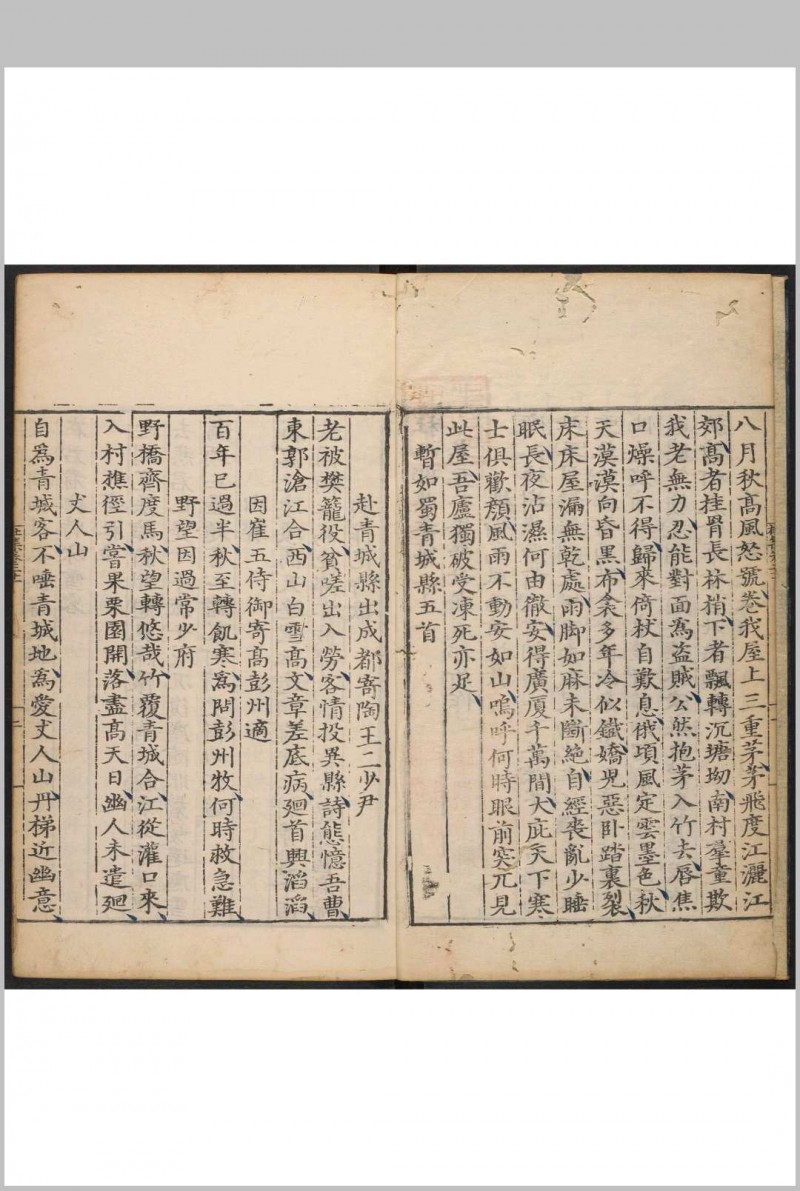 八月秋髙風怒號卷我屋上三重茅茅飛度江灑江
郊髙者挂罥長林梢下者飄轉沉塘坳南村羣童欺
我老無力忍能對面爲盗賊公然抱茅入竹去唇焦
口燥呼不得歸來倚杖自歎息俄頃風定雲墨色秋
天漠漠向昏黑布衾多年冷似鐵嬌兒惡卧踏裏裂
床床屋漏無乾處雨脚如麻未斷絶自經喪亂少睡
眠長夜沾濕何由徹安得廣厦千萬間大庇天下寒
士俱歡顔風雨不動安如山嗚呼何時眼前突兀見
此屋吾廬獨破受凍死亦足
暫如蜀青城縣五首
赴青城縣出成都寄陶王二少尹
老被樊籠役貧嗟出入勞客情投異縣詩態憶吾曹
東郭滄江合西山白雪髙文章差底病廻首興滔滔
因崔五侍御寄髙彭州適
百年已過半秋至轉飢寒爲問彭州牧何時救急難
野望因過常少府
野橋齊度馬秋望轉悠哉竹覆青城合江從灌口來
入村樵徑引嘗果栗園開落盡髙天日幽人未遣廻
丈人山
自爲青城客不唾青城地爲愛丈人山丹梯近幽意